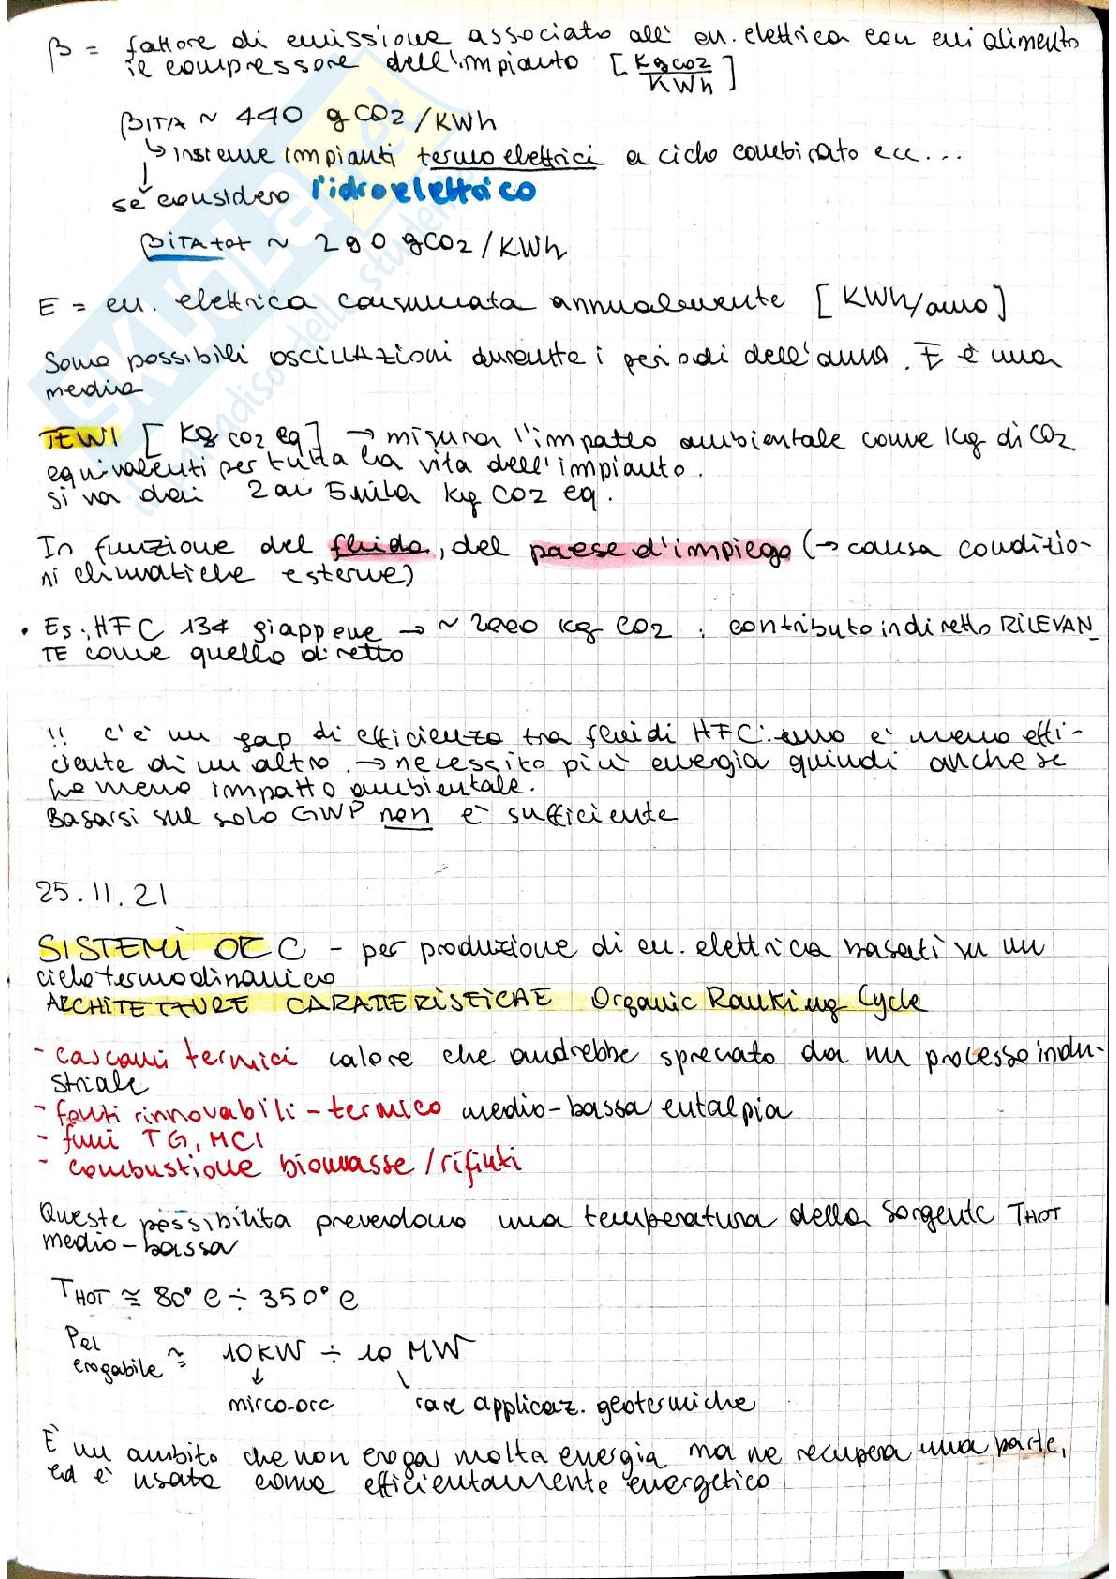 β = fattore di emissione associato all' en. elettrica con cui alimento
il compressore dell'impianto [KgCO2/KWh]
βITA ~ 440 gCO2/KWh
↳ insieme impianti termoelettrici a ciclo combinato ecc...
se considero l'idroelettrico
βITAtot ~ 290 gCO2/KWh
E = en. elettrica consumata annualmente [KWh/anno]
Sono possibili oscillazioni durante i periodi dell'anno. E è una
media
TEWI [Kg CO2 eq] → misura l'impatto ambientale come Kg di CO2
equivalenti per tutta la vita dell'impianto.
si va dai 2 ai 5mila Kg CO2 eq.
In funzione del fluido, del paese d'impiego (→ causa condizio-
ni climatiche esterne)
• Es: HFC 134 giappone → ~ 2000 Kg CO2 : contributo indiretto RILEVAN_
TE come quello diretto
!! c'è un gap di efficienza tra fluidi HFC: uno è meno effi-
ciente di un altro → necessito più energia quindi anche se
ha meno impatto ambientale.
Basarsi sul solo GWP non è sufficiente
25.11.21
SISTEMI ORC - per produzione di en. elettrica basati su un
ciclo termodinamico
ARCHITETTURE CARATTERISTICHE Organic Ranking Cycle
- cascami termici calore che andrebbe sprecato da un processo indu-
striale
- fonti rinnovabili - termico medio-bassa entalpia
- fumi TG, MCI
- combustione biomasse / rifiuti
Queste possibilità prevedono una temperatura della sorgente THOT
medio-bassa
THOT ≅ 80°C ÷ 350°C
Pel
erogabile ≅ 10KW ÷ 10 MW
mirco-orc rare applicaz. geotermiche
È un ambito che non eroga molta energia ma ne recupera una parte,
ed è usato come efficientamente energetico